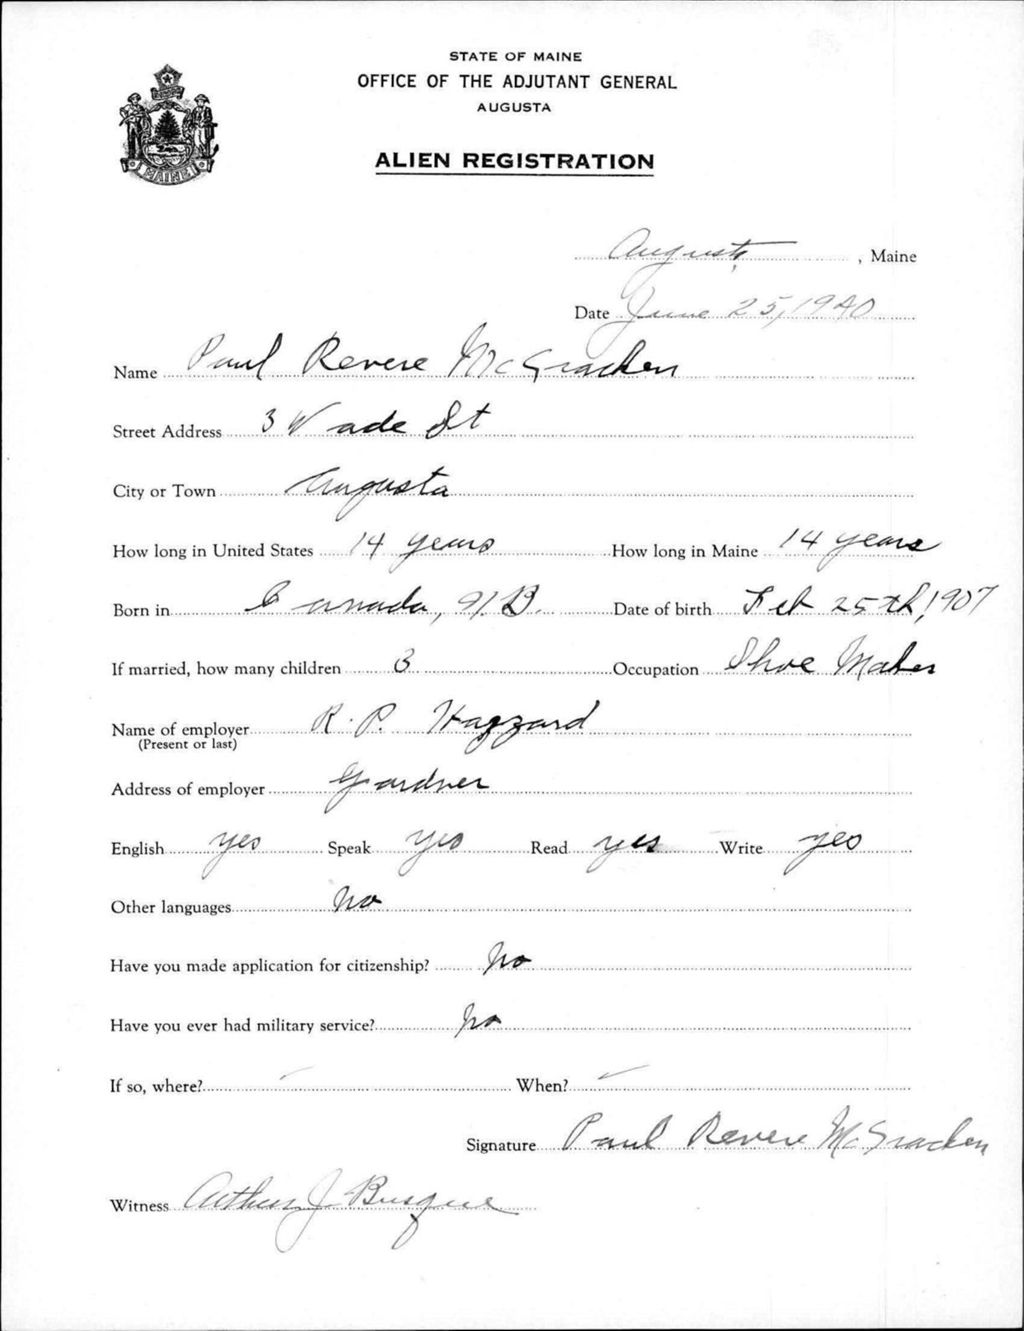 STATE OF MAINE
OFFICE OF THE ADJUTANT GENERAL
AUGUSTA
ALIEN REGISTRATION
MAINE
Augusta, Maine
Date June 25, 1940
Name Paul Revere McCracken
Street Address 3 Wade St
City or Town Augusta
How long in United States 14 years How long in Maine 14 years
Born in Canada, N.B. Date of birth Feb 25th, 1907
If married, how many children 3 Occupation Shoe Maker
Name of employer R. P. Hazzard
(Present or last)
Address of employer Gardner
English yes Speak yes Read yes Write yes
Other languages No
Have you made application for citizenship? No
Have you ever had military service? No
If so, where? — When? —
Signature Paul Revere McCracken
Witness Arthur J Busque